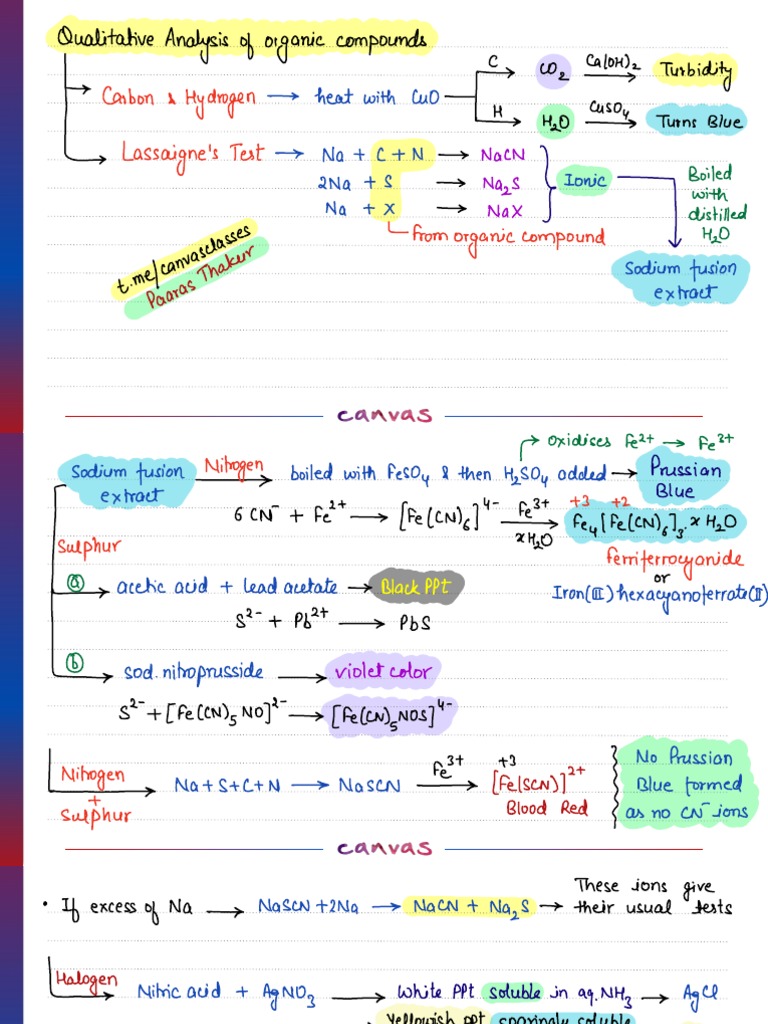 Qualitative Analysis of organic compounds
Carbon & Hydrogen → heat with CuO
C → CO₂ Ca(OH)₂ → Turbidity
H → H₂O CuSO₄ → Turns Blue
Lassaigne's Test → Na + C + N → NaCN
2Na + S → Na₂S
Na + X → NaX
Ionic
Boiled
with
distilled
H₂O
from organic compound
Sodium fusion
extract
t.me/canvasclasses
Paaras Thakur
canvas
→ Oxidises Fe²⁺ → Fe³⁺
Sodium fusion
extract
Nitrogen → boiled with FeSO₄ & then H₂SO₄ added → Prussian
Blue
6 CN⁻ + Fe²⁺ → [Fe(CN)₆]⁴⁻ Fe³⁺ → xH₂O +3 +2 Fe₄[Fe(CN)₆]₃.xH₂O
ferriferrocyanide
or
Iron(III) hexacyanoferrate(II)
Sulphur
ⓐ acetic acid + lead acetate → Black PPt
S²⁻ + Pb²⁺ → PbS
ⓑ sod. nitroprusside → violet color
S²⁻ + [Fe(CN)₅NO]²⁻ → [Fe(CN)₅NOS]⁴⁻
Nitrogen
+
Sulphur
Na + S + C + N → NaSCN Fe³⁺ → +3 [Fe(SCN)]²⁺
Blood Red
No Prussian
Blue formed
as no CN⁻ ions
canvas
• If excess of Na → NaSCN + 2Na → NaCN + Na₂S → These ions give
their usual tests
Halogen
Nitric acid + AgNO₃ → White PPt soluble in aq.NH₃ → AgCl
Yellowish ppt sparingly soluble